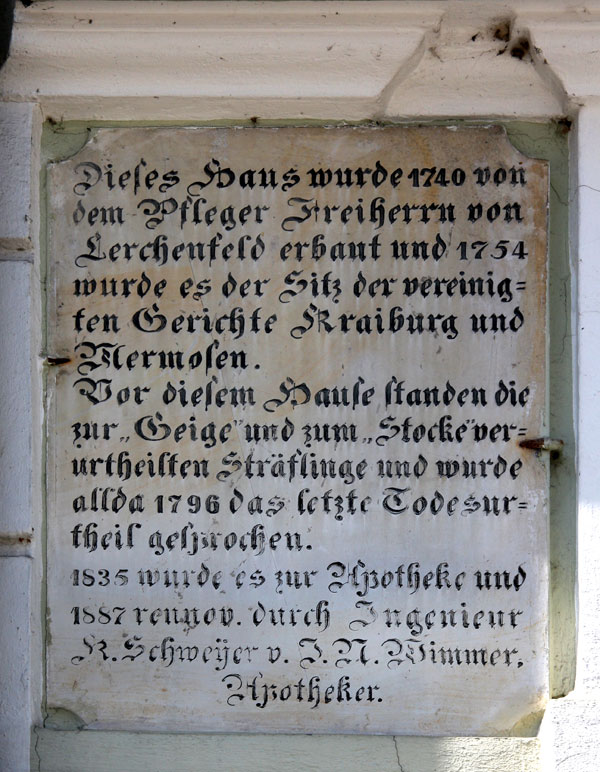 Dieses Haus wurde 1740 von
dem Pfleger Freiherrn von
Lerchenfeld erbaut und 1754
wurde es der Sitz der vereinig=
ten Gerichte Kraiburg und
Mermosen.
Vor diesem Hause standen die
zur „Geige" und zum „Stocke" ver=
urtheilten Sträflinge und wurde
allda 1796 das letzte Todesur=
theil gesprochen.
1835 wurde es zur Apotheke und
1887 rennov. durch Ingenieur
K. Schweÿer v. J. N. Wimmer,
Apotheker.